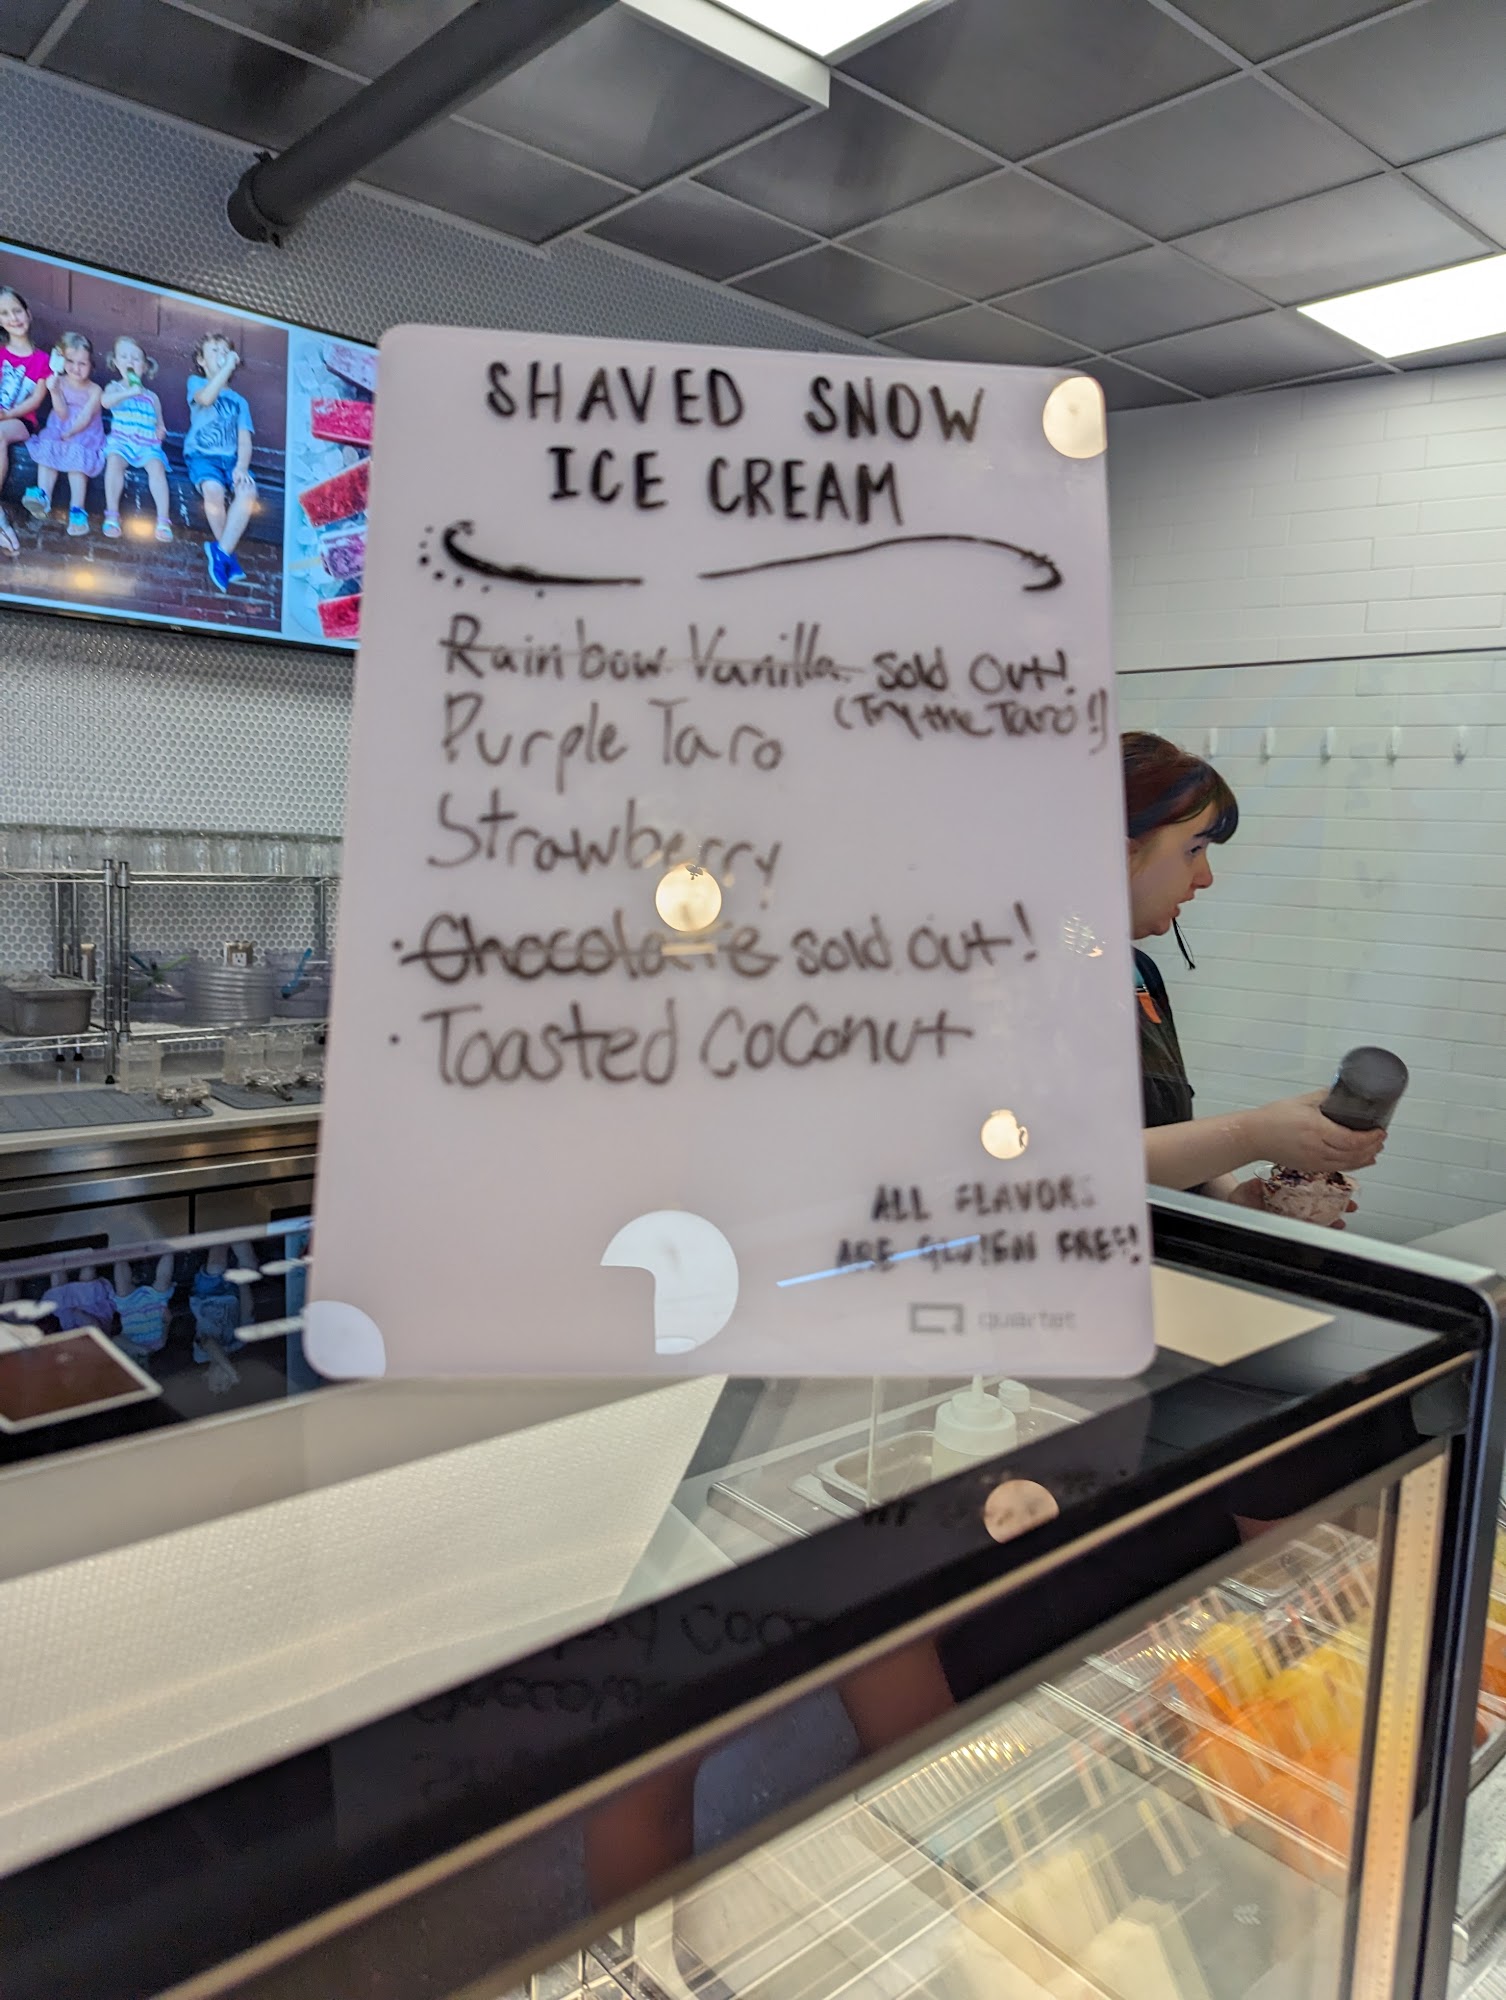 SHAVED SNOW
ICE CREAM
Rainbow Vanilla Sold Out!
(Try the Taro!)
Purple Taro
Strawberry
· Chocolate sold out!
· Toasted Coconut
ALL FLAVORS
ARE GLUTEN FREE!
quartet